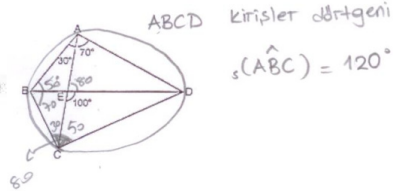 ABCD kirişler dörtgeni
s(ABC) = 120°
A
30° 70°
B 50° 80 D
70° E 100°
30 50
C
80